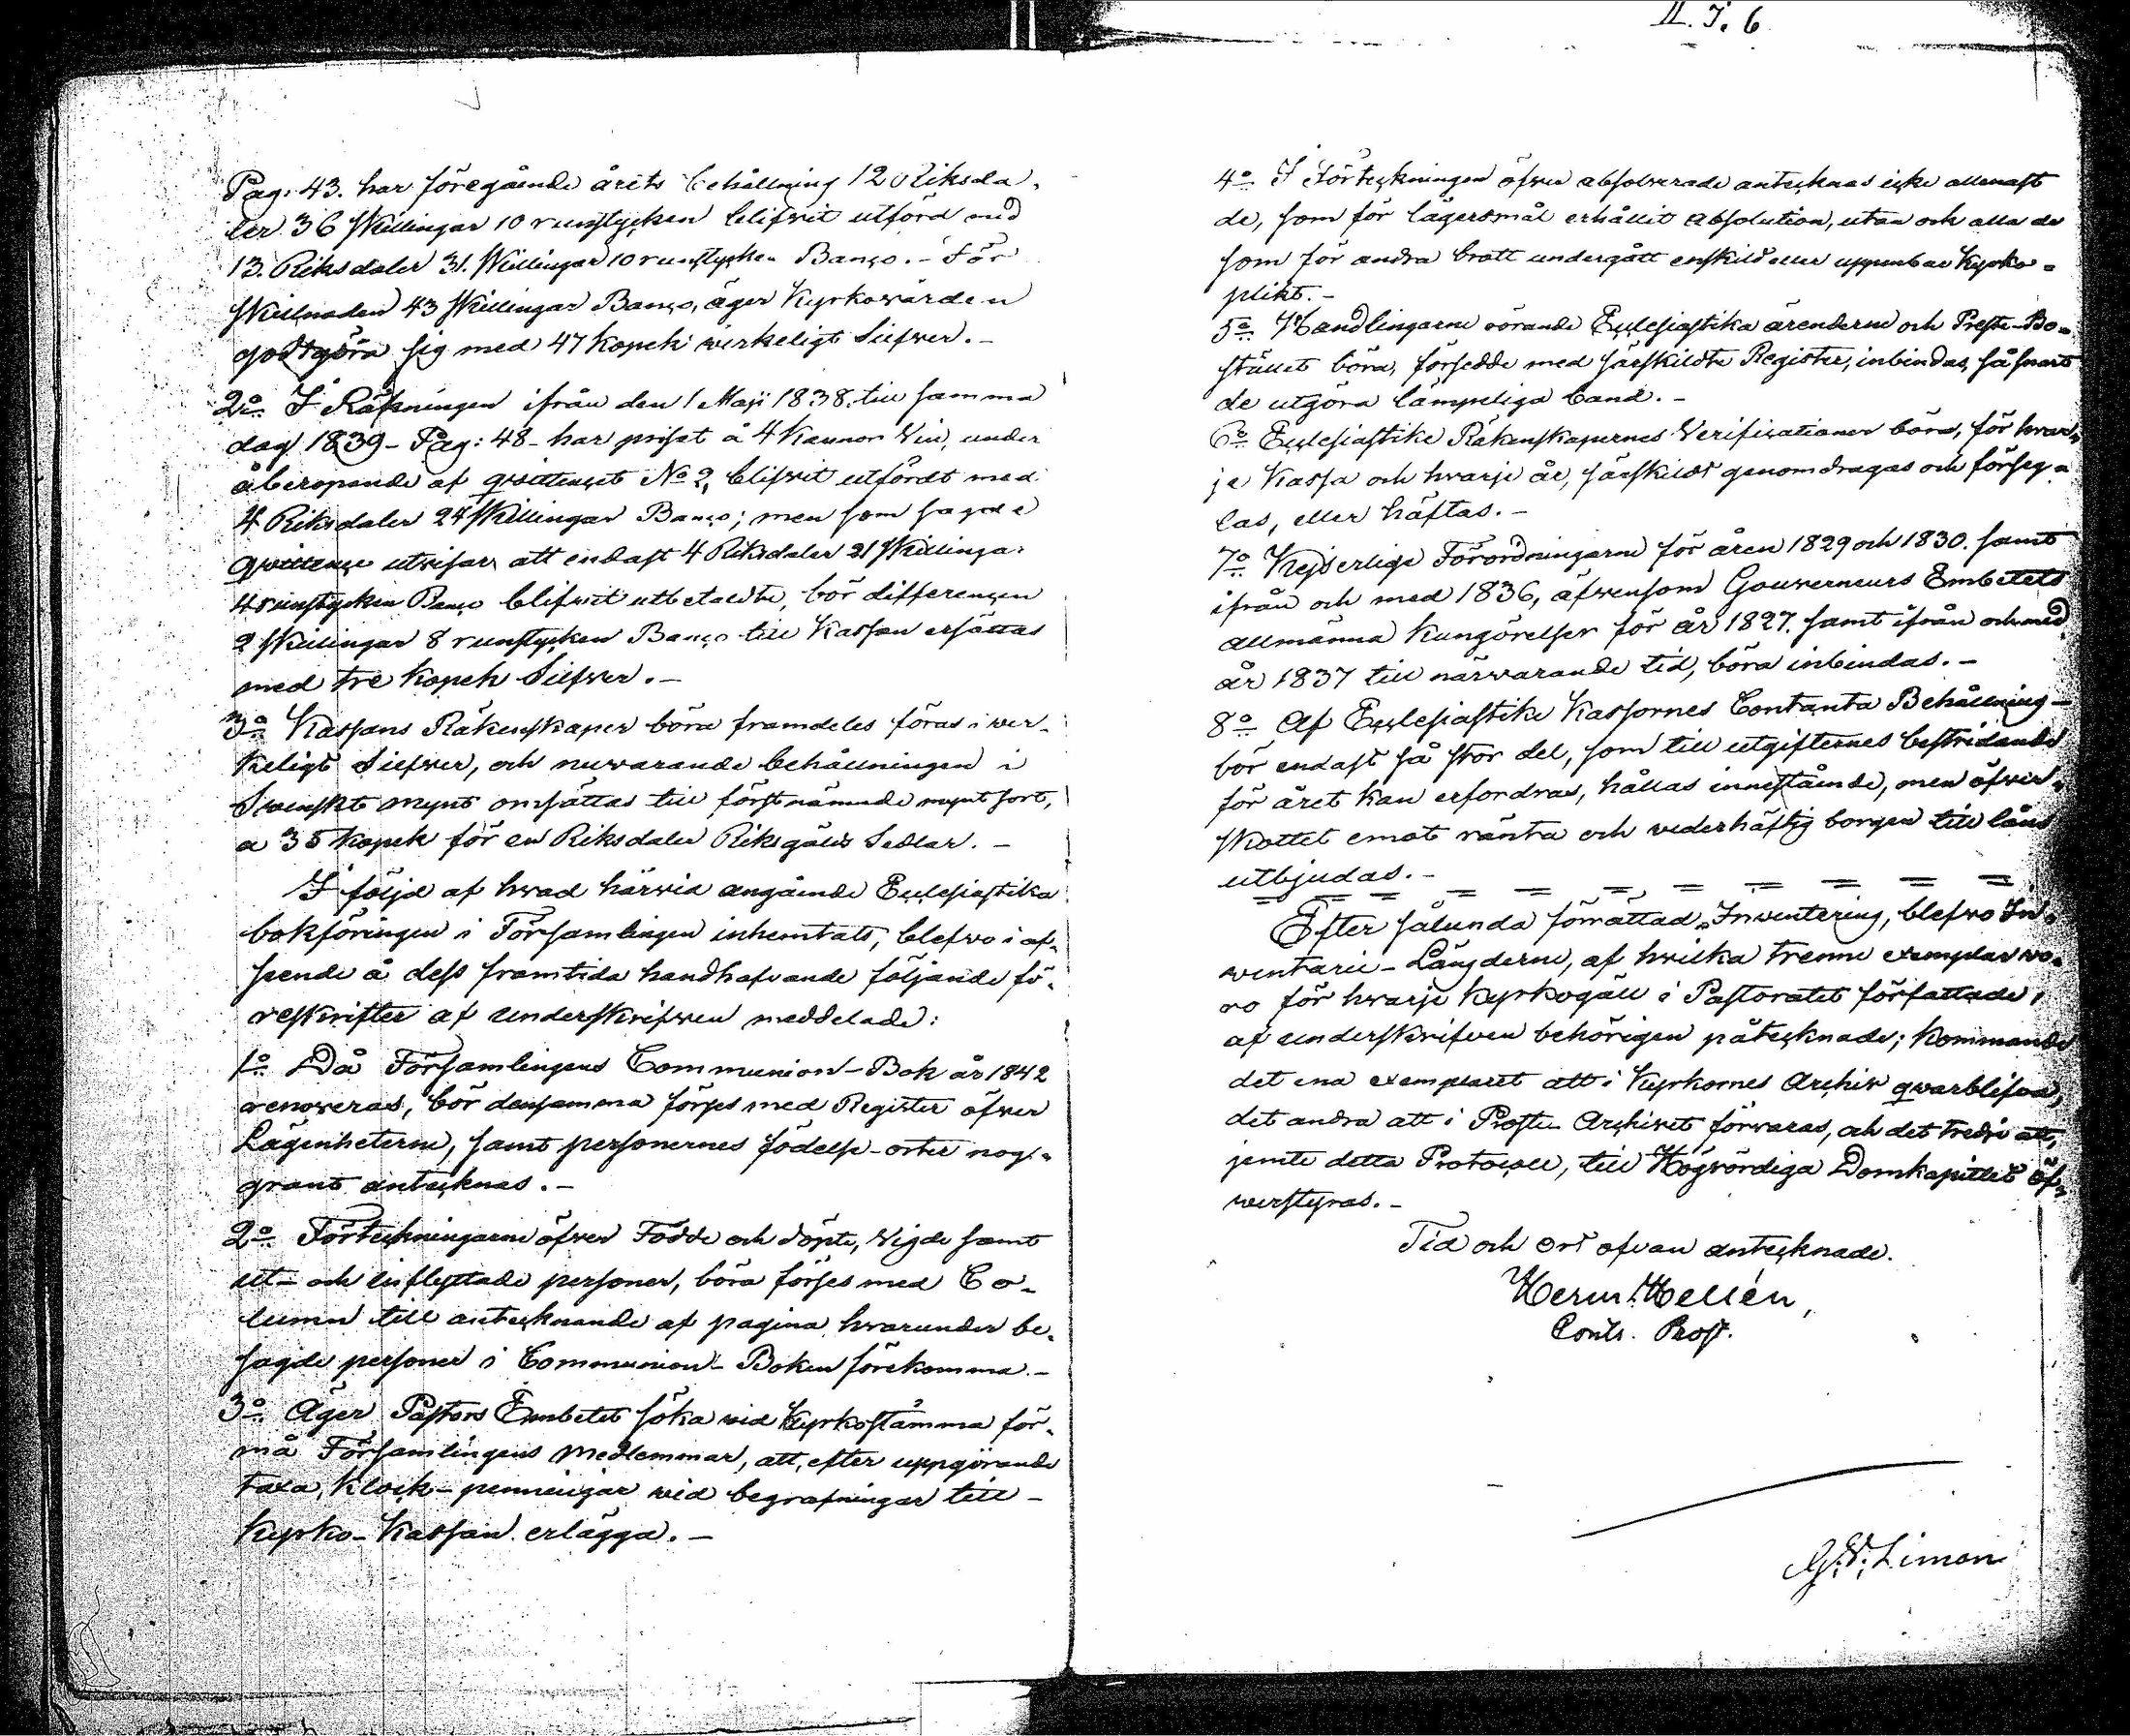 II. J. 6
Pag: 43. har föregående årets behållning 12 Riksda-
ler 36 Skillingar 10 runstycken blifvit utförd med
13. Riksdaler 31. Skillingar 10 runstycken Banco. - För
skillnaden 43 Skillingar Banco, äger Kyrkovärden
godtgöra sig med 47 kopek verkeligt Silfver. -
2o I Räkningen ifrån den 1 Maji 1838. till samma
dag 1839 - Pag: 48 - har priset å 4 Kannor Vin, under
åberopande af qvittencet No 2, blifvit utfördt med
4 Riksdaler 24 Skillingar Banco; men som sagde
Qvittence utvisar, att endast 4 Riksdaler 21 Skillingar
4 runstycken Banco blifvit utbetaldte, bör differencen
2 Skillingar 8 runstycken Banco till Kassan ersättas
med tre kopek Silfver. -
3o Kassans Räkenskaper böra framdeles föras i ver-
keligt Silfver, och nuvarande behållningen i
Svenskt mynt omsättas till förstnämnde myntsort,
a 35 kopek för en Riksdaler Riksgälds Sedlar. -
I följd af hvad härvid angående Ecclesiastika
bokföringen i Församlingen inhemtats, blefvo i af-
seende å dess framtida handhafvande följande fö-
reskrifter af underskrifven meddelade:
1o Då Församlingens Communion-Bok år 1842
renoveras, bör densamma förses med Register öfver
Lägenheterne, samt personernes födelse-orter nog-
grant antecknas. -
2o Förteckningarne öfver Födde och döpte, vigde samt
ut- och inflyttade personer, böra förses med Co-
lumn till antecknande af pagina, hvarunder be-
sagde personer i Communion-Boken förekomma. -
3o Äger Pastors Embetet söka vid Kyrkostämma för-
må Församlingens medlemmar, att, efter uppgörande
taxa, Klock-penningar vid begrafningar till -
Kyrko-Kassan erlägga. -
4o I Förteckningen öfver absolverade antecknas icke allenast
de, som för lägersmål erhållit absolution, utan och alla de
som för andra brott undergått enskild eller uppenbar Kyrko-
plikt. -
5o Handlingarne rörande Ecclesiastika ärenderne och Preste-Bo-
stället böra, försedde med särskildte Register, inbindas, så snart
de utgöra lämpeliga band. -
6o Ecclesiastike Räkenskapernes Verificationer böra, för hvar-
je Kassa och hvarje år, särskildt genomdragas och förseg-
las, eller häftas. -
7o Kejserlige Förordningarne för åren 1829 och 1830. samt
ifrån och med 1836, äfvensom Gouverneurs Embetets
allmänna Kungörelser för år 1827. samt ifrån och med
år 1837 till närvarande tid, böra inbindas. -
8o Af Ecclesiastike Kassornes Contanta Behållning -
bör endast så stor del, som till utgifternes bestridande
för året kan erfordras, hållas innestående, men öfver-
skottet emot ränta och vederhäftig borgen till låns
utbjudas. -
Efter sålunda förrättad Inventering, blefvo In-
ventarie-Längderne, af hvilka trenne exemplar vo-
ro för hvarje Kyrkogäll i Pastoratet författade,
af underskrifven behörigen påtecknade; kommande
det ena exemplaret att i Kyrkornes Archiv qvarblifva,
det andra att i Proste-Archivet förvaras, och det tredje att,
jemte detta Protocoll, till Högvördiga Domkapitlet öf-
verstyras. -
Tid och ort ofvan antecknade.
Herm: Hellén,
Contr. Prost.
G. V. Liman